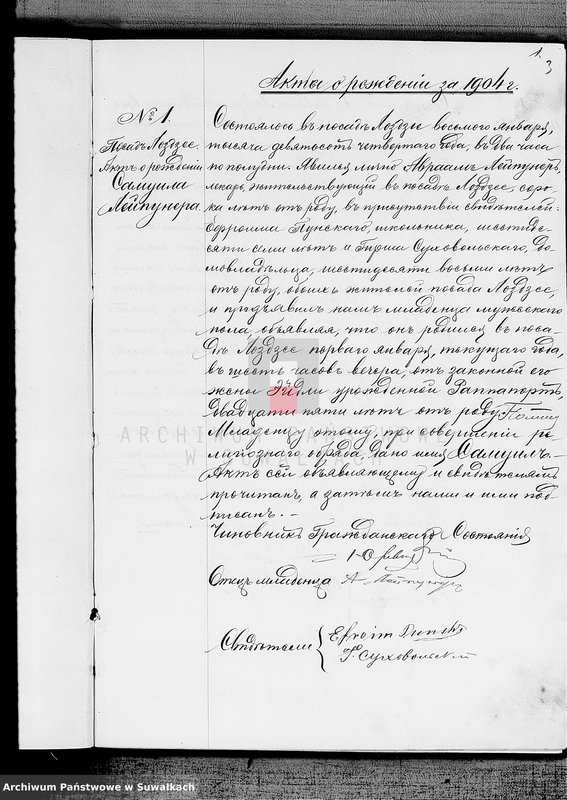 1.
3
Акты о рожденіи за 1904 г.
№ 1.
Посадъ Лоздзее.
Актъ о рожденіи
Самуила
Лейпунера.
Состоялось въ посадѣ Лоздзее восьмого января,
тысяча девятьсотъ четвертаго года, въ два часа
по полудни. Явился лично Авраамъ Лейпунеръ,
лекарь, жительствующій въ посадѣ Лоздзее, соро-
ка лѣтъ отъ роду, въ присутствіи свидѣтелей:
Ефроима Пунскаго, школьника, шестиде-
сяти семи лѣтъ и Гирша Суховольскаго, до-
мовладѣльца, шестидесяти восьми лѣтъ
отъ роду, обоихъ жителей посада Лоздзее,
и предъявилъ намъ младенца мужескаго
пола, объявляя, что онъ родился въ поса-
дѣ Лоздзее перваго января, текущаго года,
въ шесть часовъ вечера, отъ законной его
жены урожденной Раппапортъ,
двадцати пяти лѣтъ отъ роду.
Младенцу этому, при совершеніи ре-
лигіознаго обряда, дано имя Самуилъ. —
Актъ сей объявляющему и свидѣтелямъ
прочитанъ, а затѣмъ нами и ими под-
писанъ. —
Чиновникъ Гражданскаго Состоянія
Отецъ младенца А. Лейпунеръ
Свидѣтели
Efroim Punski
Г. Суховольскій
ARCHIWUM PAŃSTWOWE
W SUWAŁKACH
Archiwum Państwowe w Suwałkach